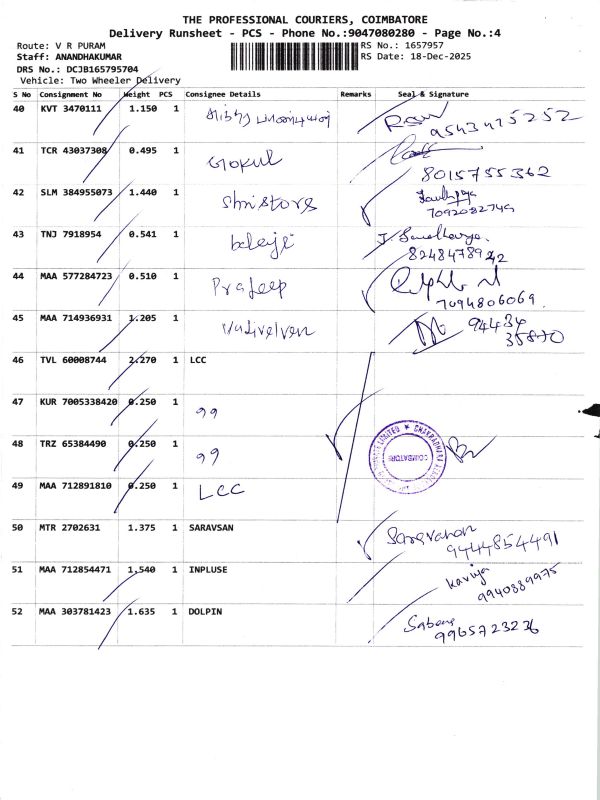 THE PROFESSIONAL COURIERS, COIMBATORE
Delivery Runsheet - PCS - Phone No.:9047080280 - Page No.:4
Route: V R PURAM
RS No.: 1657957
Staff: ANANDHAKUMAR
RS Date: 18-Dec-2025
DRS No.: DCJB165795704
Vehicle: Two Wheeler Delivery
S No Consignment No Weight PCS Consignee Details Remarks Seal & Signature
40 KVT 3470111 1.150 1
9543475252
41 TCR 43037308 0.495 1 Gokul
8015755362
42 SLM 384955073 1.440 1 Shri stors
7092082749
43 TNJ 7918954 0.541 1 balaji
44 MAA 577284723 0.510 1 Pradeep
7094806069
45 MAA 714936931 1.205 1 Vadivelven
94434
46 TVL 60008744 2.270 1 LCC
47 KUR 7005338420 0.250 1 99
48 TRZ 65384490 0.250 1 99
COIMBATORE
49 MAA 712891810 0.250 1 LCC
50 MTR 2702631 1.375 1 SARAVSAN Saravanan
9444854491
51 MAA 712854471 1.540 1 INPLUSE Kaviya
9940889975
52 MAA 303781423 1.635 1 DOLPIN
9965723236